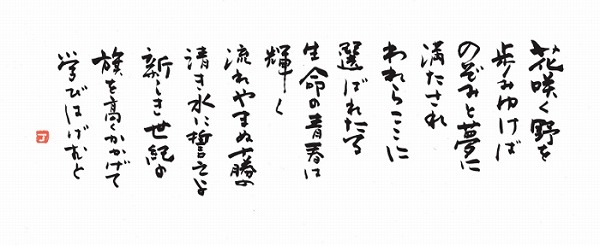 花咲く野を
歩みゆけば
のぞみと夢に
満たされ
われらここに
選ばれたる
生命の青春は
輝く
流れやまぬ十勝の
清き水に誓えよ
新しき世紀の
旗を高くかかげて
学びはげむと